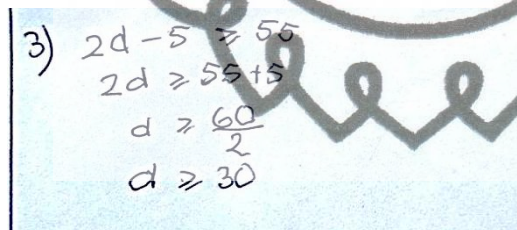 3) 2d - 5 ⩾ 55
2d ⩾ 55 + 5
d ⩾ 60/2
d ⩾ 30